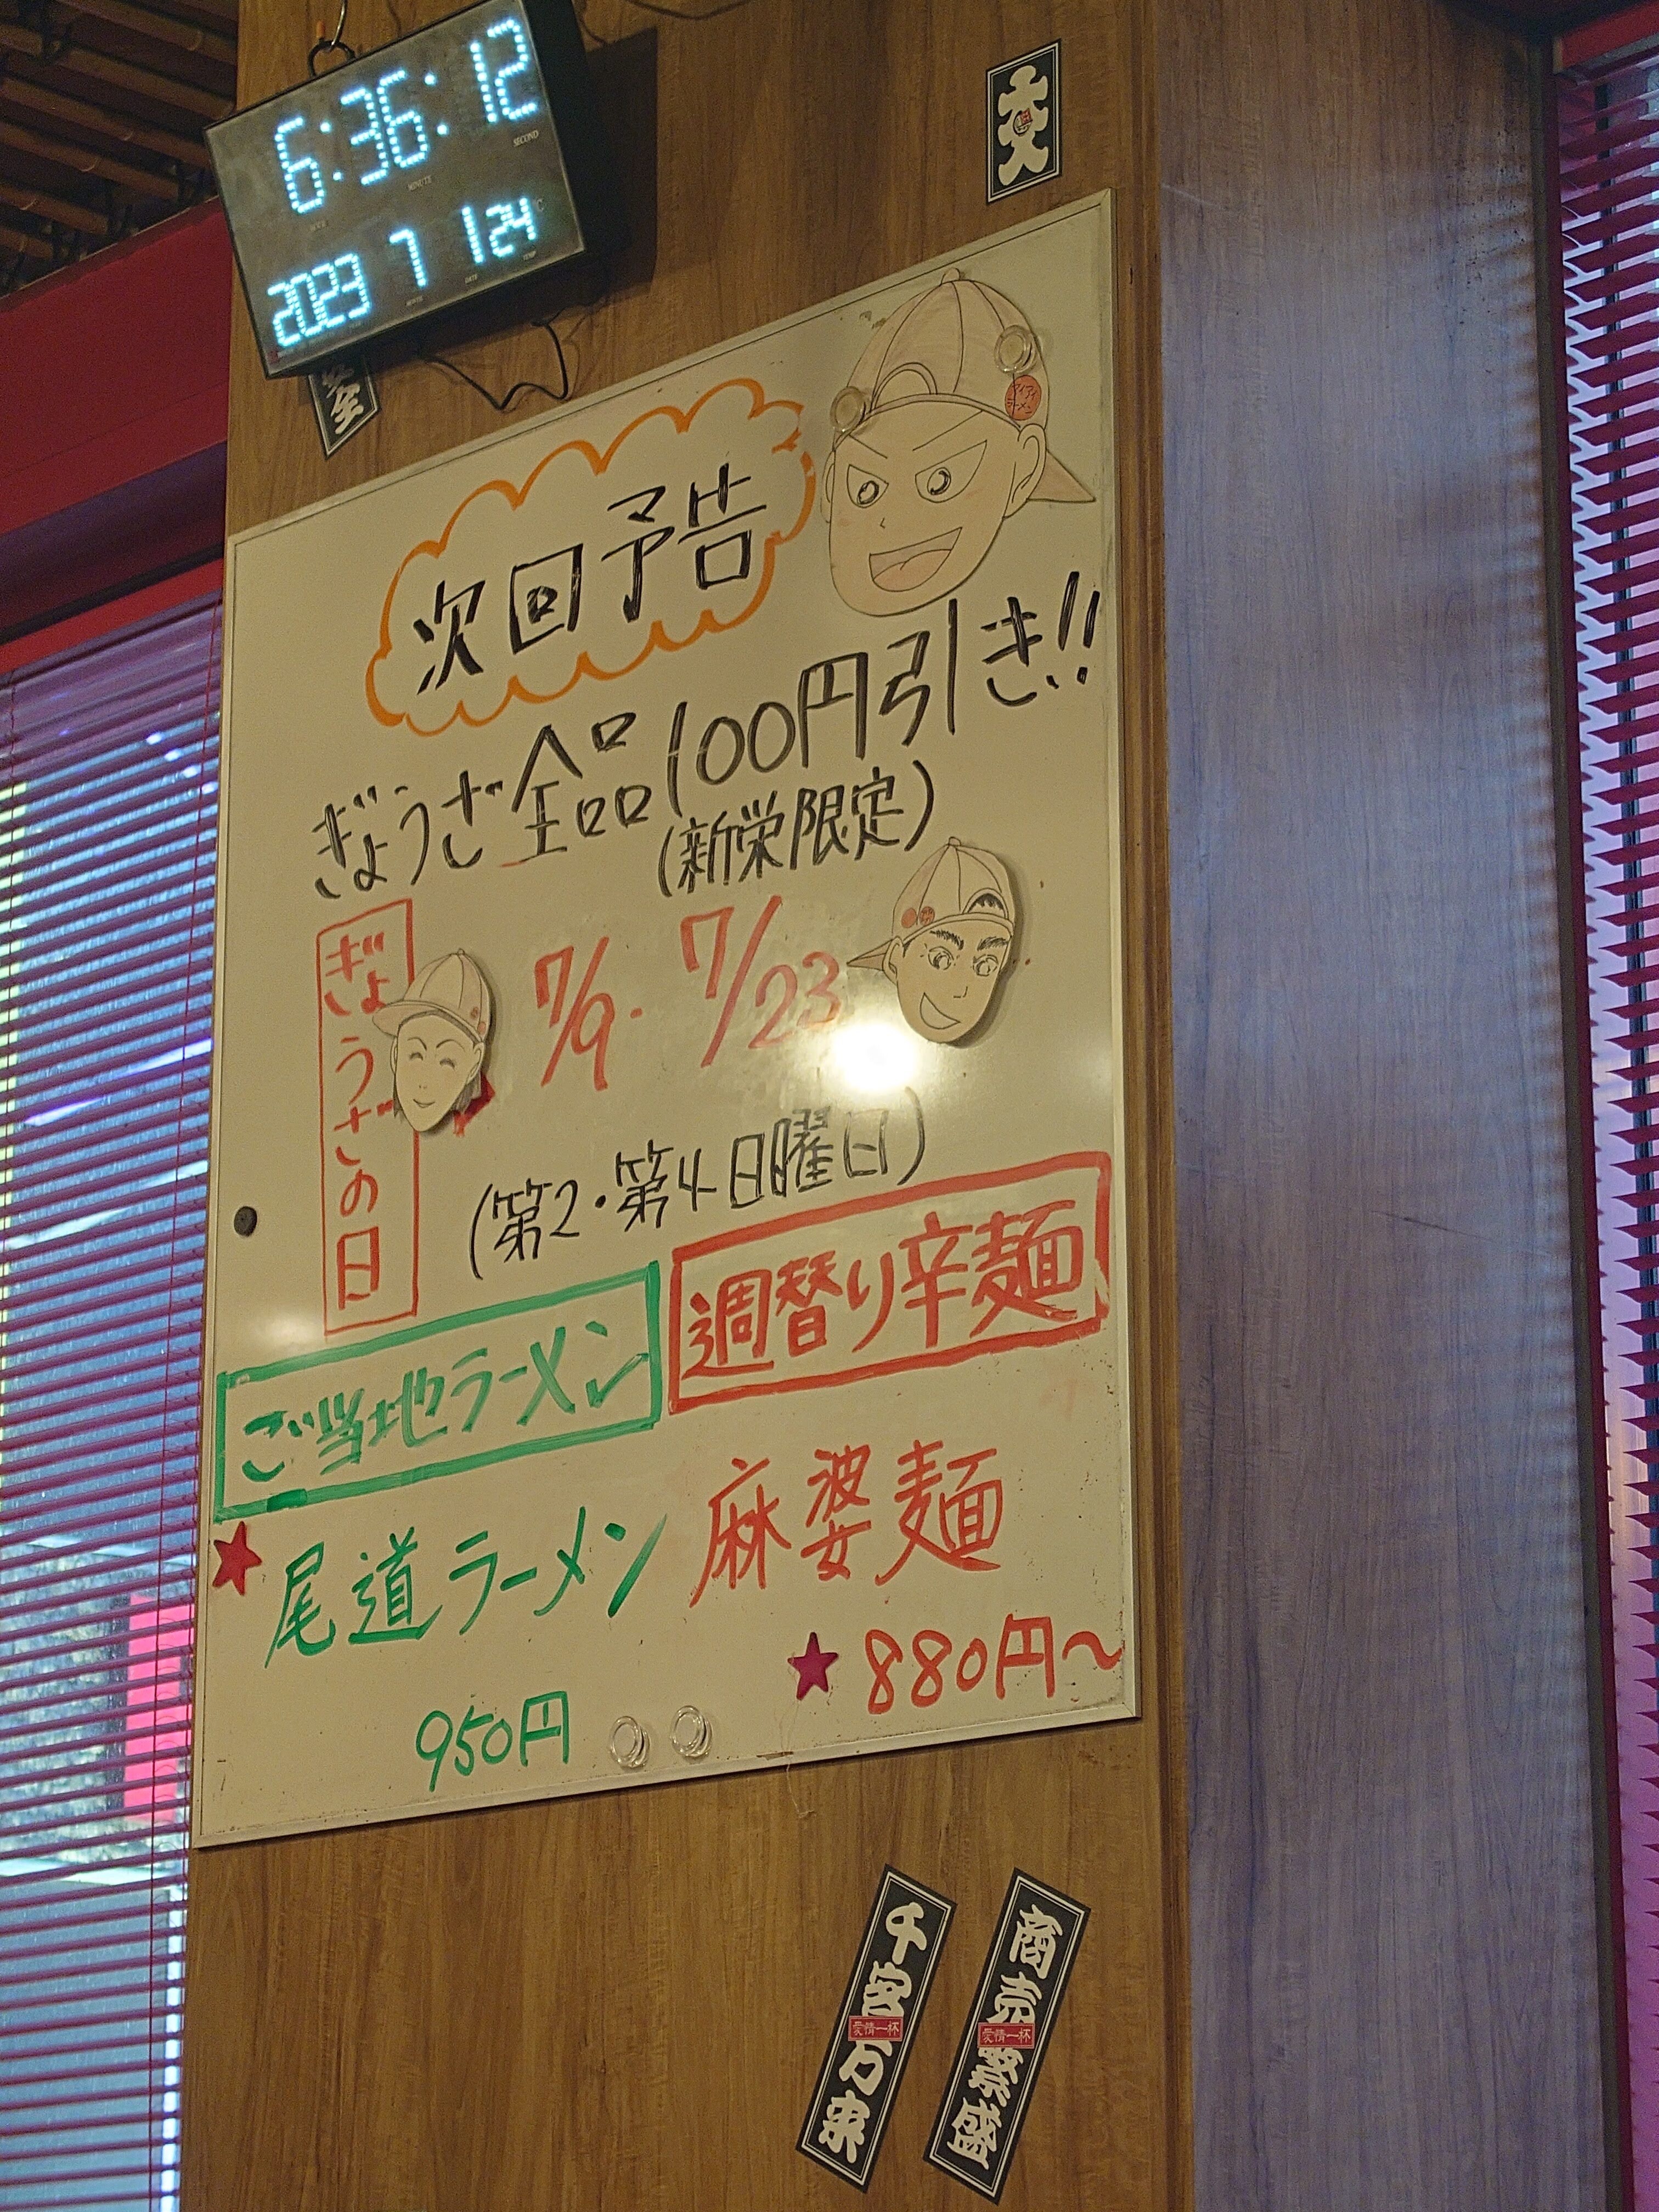 6:36:12
SECOND
MINUTE
2023 7 1 24
大入
次回予告
ぎょうざ全品100円引き!!
(新栄限定)
ぎょうざの日
7/9・7/23
(第2・第4日曜日)
ご当地ラーメン
週替り辛麺
尾道ラーメン
麻婆麺
950円
880円～
千客万来
愛情一杯
商売繁盛
愛情一杯